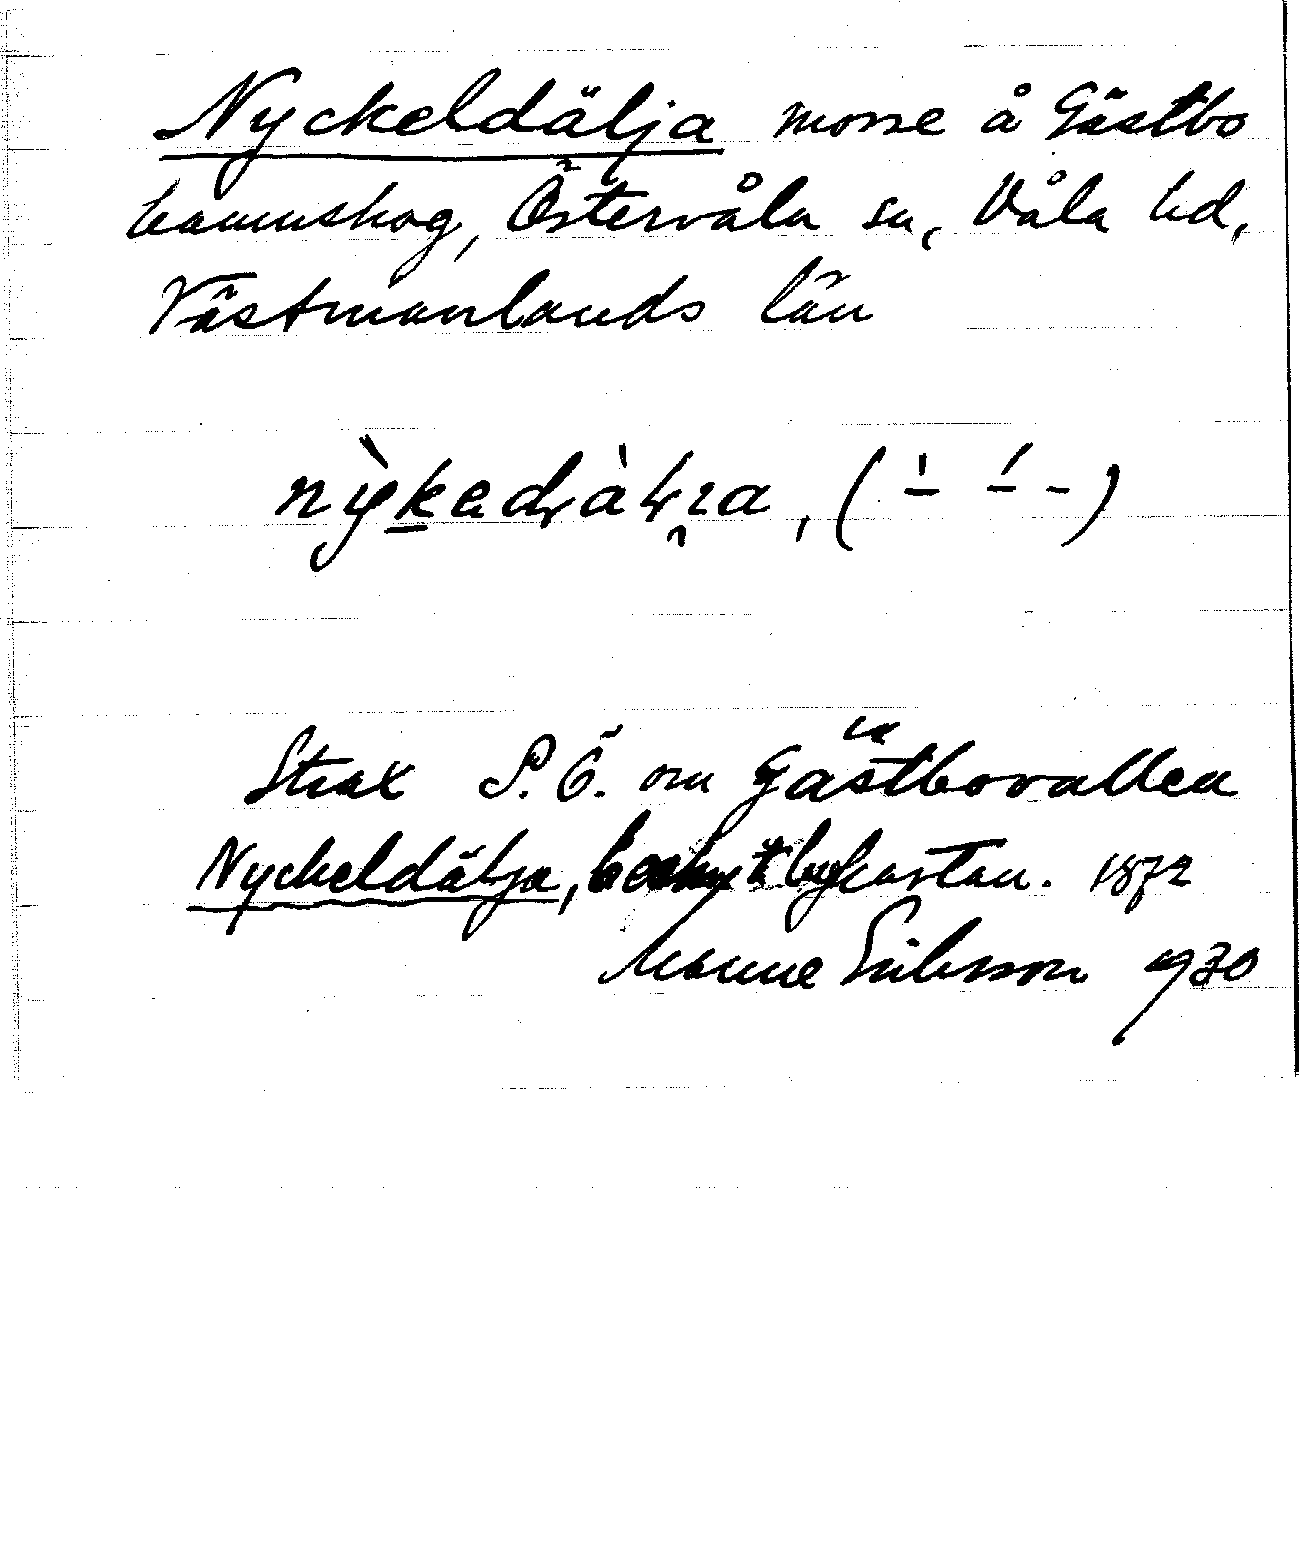 Nyckeldälja mosse å Gästbo
hamnskog, Östervåla sn, Våla hd,
Västmanlands län
Strax S.Ö. om Gästbovallen
Nyckeldälja, bykartan. 1872
Manne Eriksson 1930